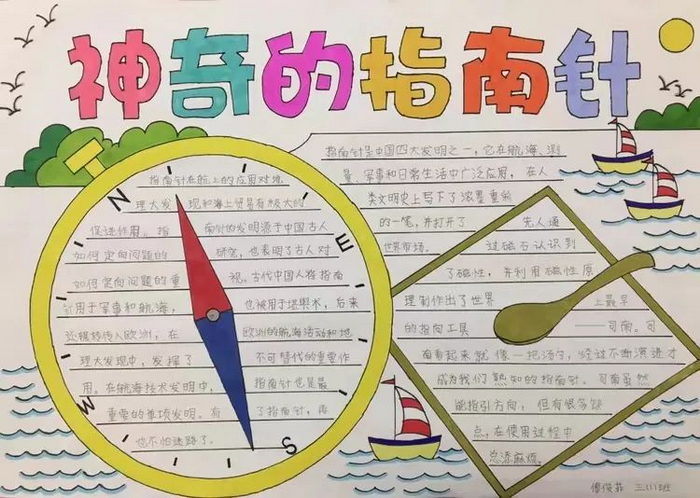 神奇的指南针
N
E
S
W
指南针在航上的应用对地
理大发现和海上贸易有极大的
促进作用。指南针的发明源于中国古人
如何定向问题的研究,也表明了古人对
如何定向问题的重视,古代中国人将指南
针用于军事和航海,也被用于堪舆术,后来
还辗转传入欧洲,在欧洲的航海活动和地
理大发现中,发挥了不可替代的重要作
用。在航海技术发明中,指南针也是最
重要的单项发明。有了指南针,再
也不怕迷路了。
指南针是中国四大发明之一,它在航海、测
量、军事和日常生活中广泛应用,在人
类文明史上写下了浓墨重彩
的一笔,并打开了
世界市场。
先人通
过磁石认识到
了磁性,并利用磁性原
理制作出了世界上最早
的指向工具——司南。司
南看起来就像一把汤勺,经过不断演进才
成为我们熟知的指南针。司南虽然
能指引方向,但有很多缺
点,在使用过程中
总添麻烦。
三(1)班